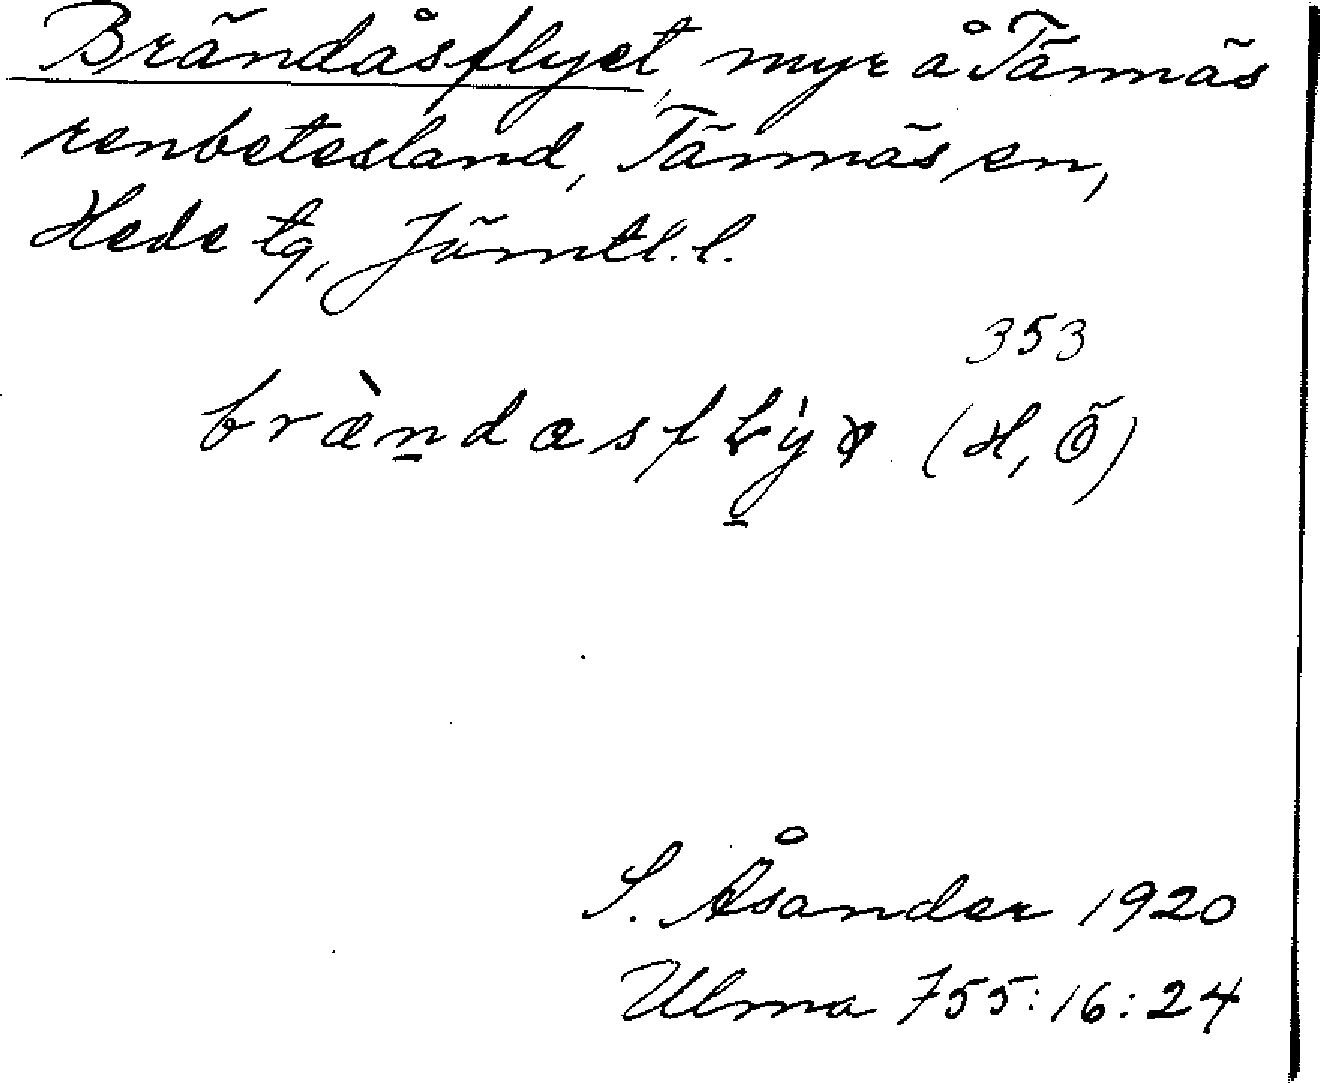 Brändåsflyet, myr å Tännäs
renbetesland, Tännäs sn,
Hede tg, Jämtl. l.
353
(H, Ö)
S. Åsander 1920
Ulma 755:16:24